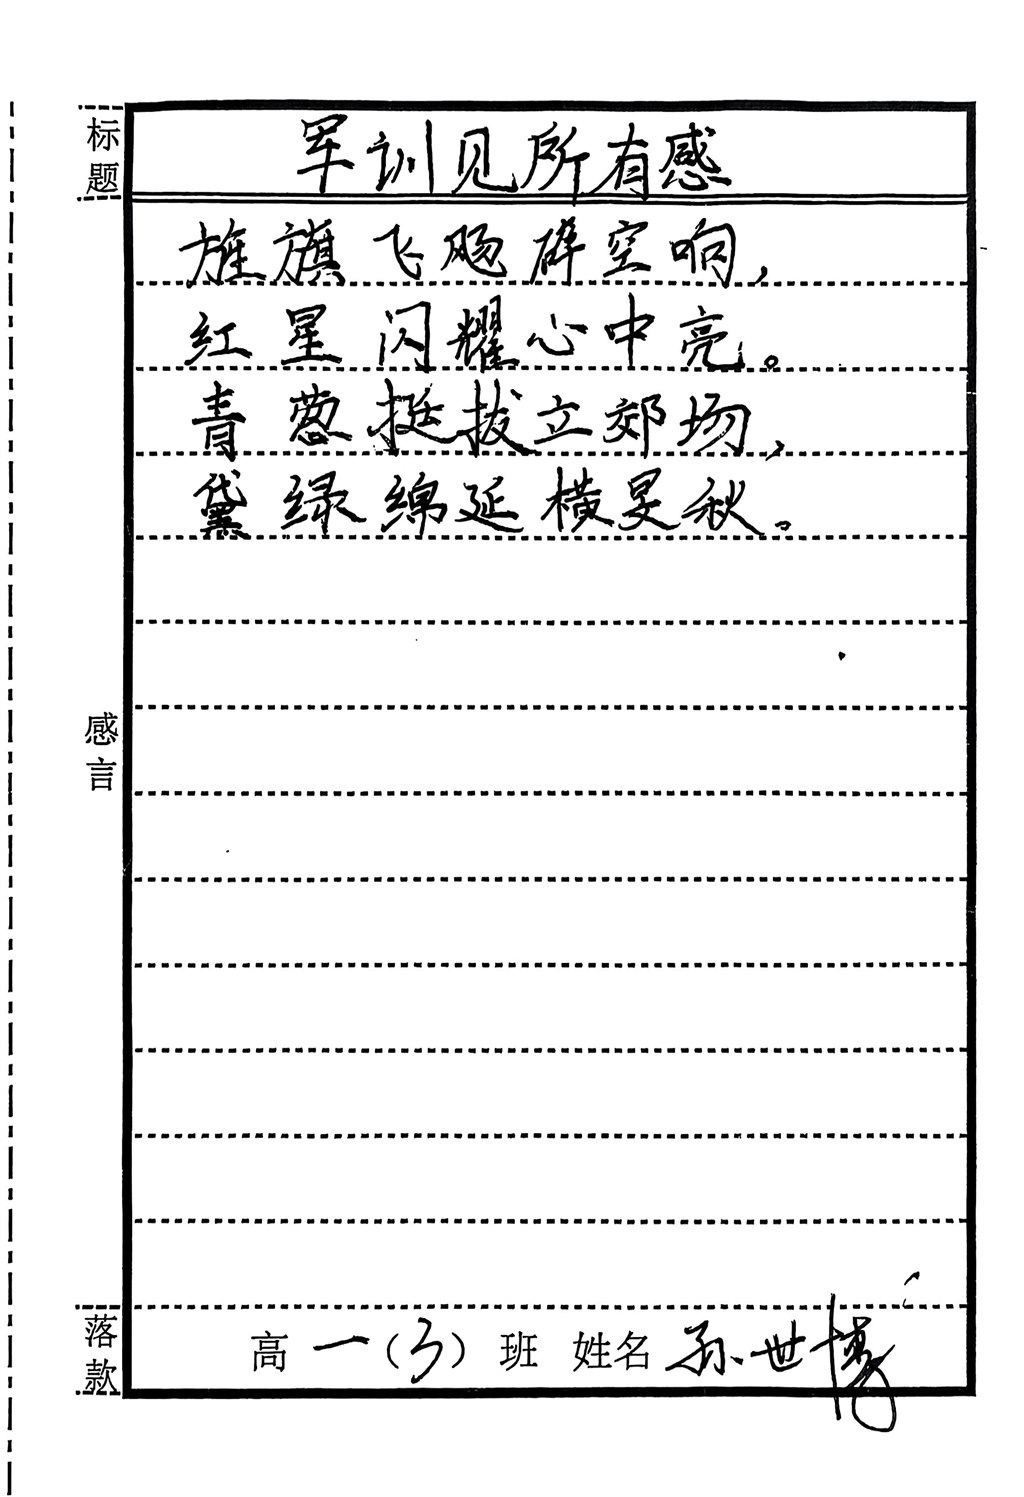 标题
军训见所有感
旌旗飞飏碎空响，
红星闪耀心中亮。
青葱挺拔立郊场，
黛绿绵延横旻秋。
感言
落款
高一（3）班 姓名 孙世博